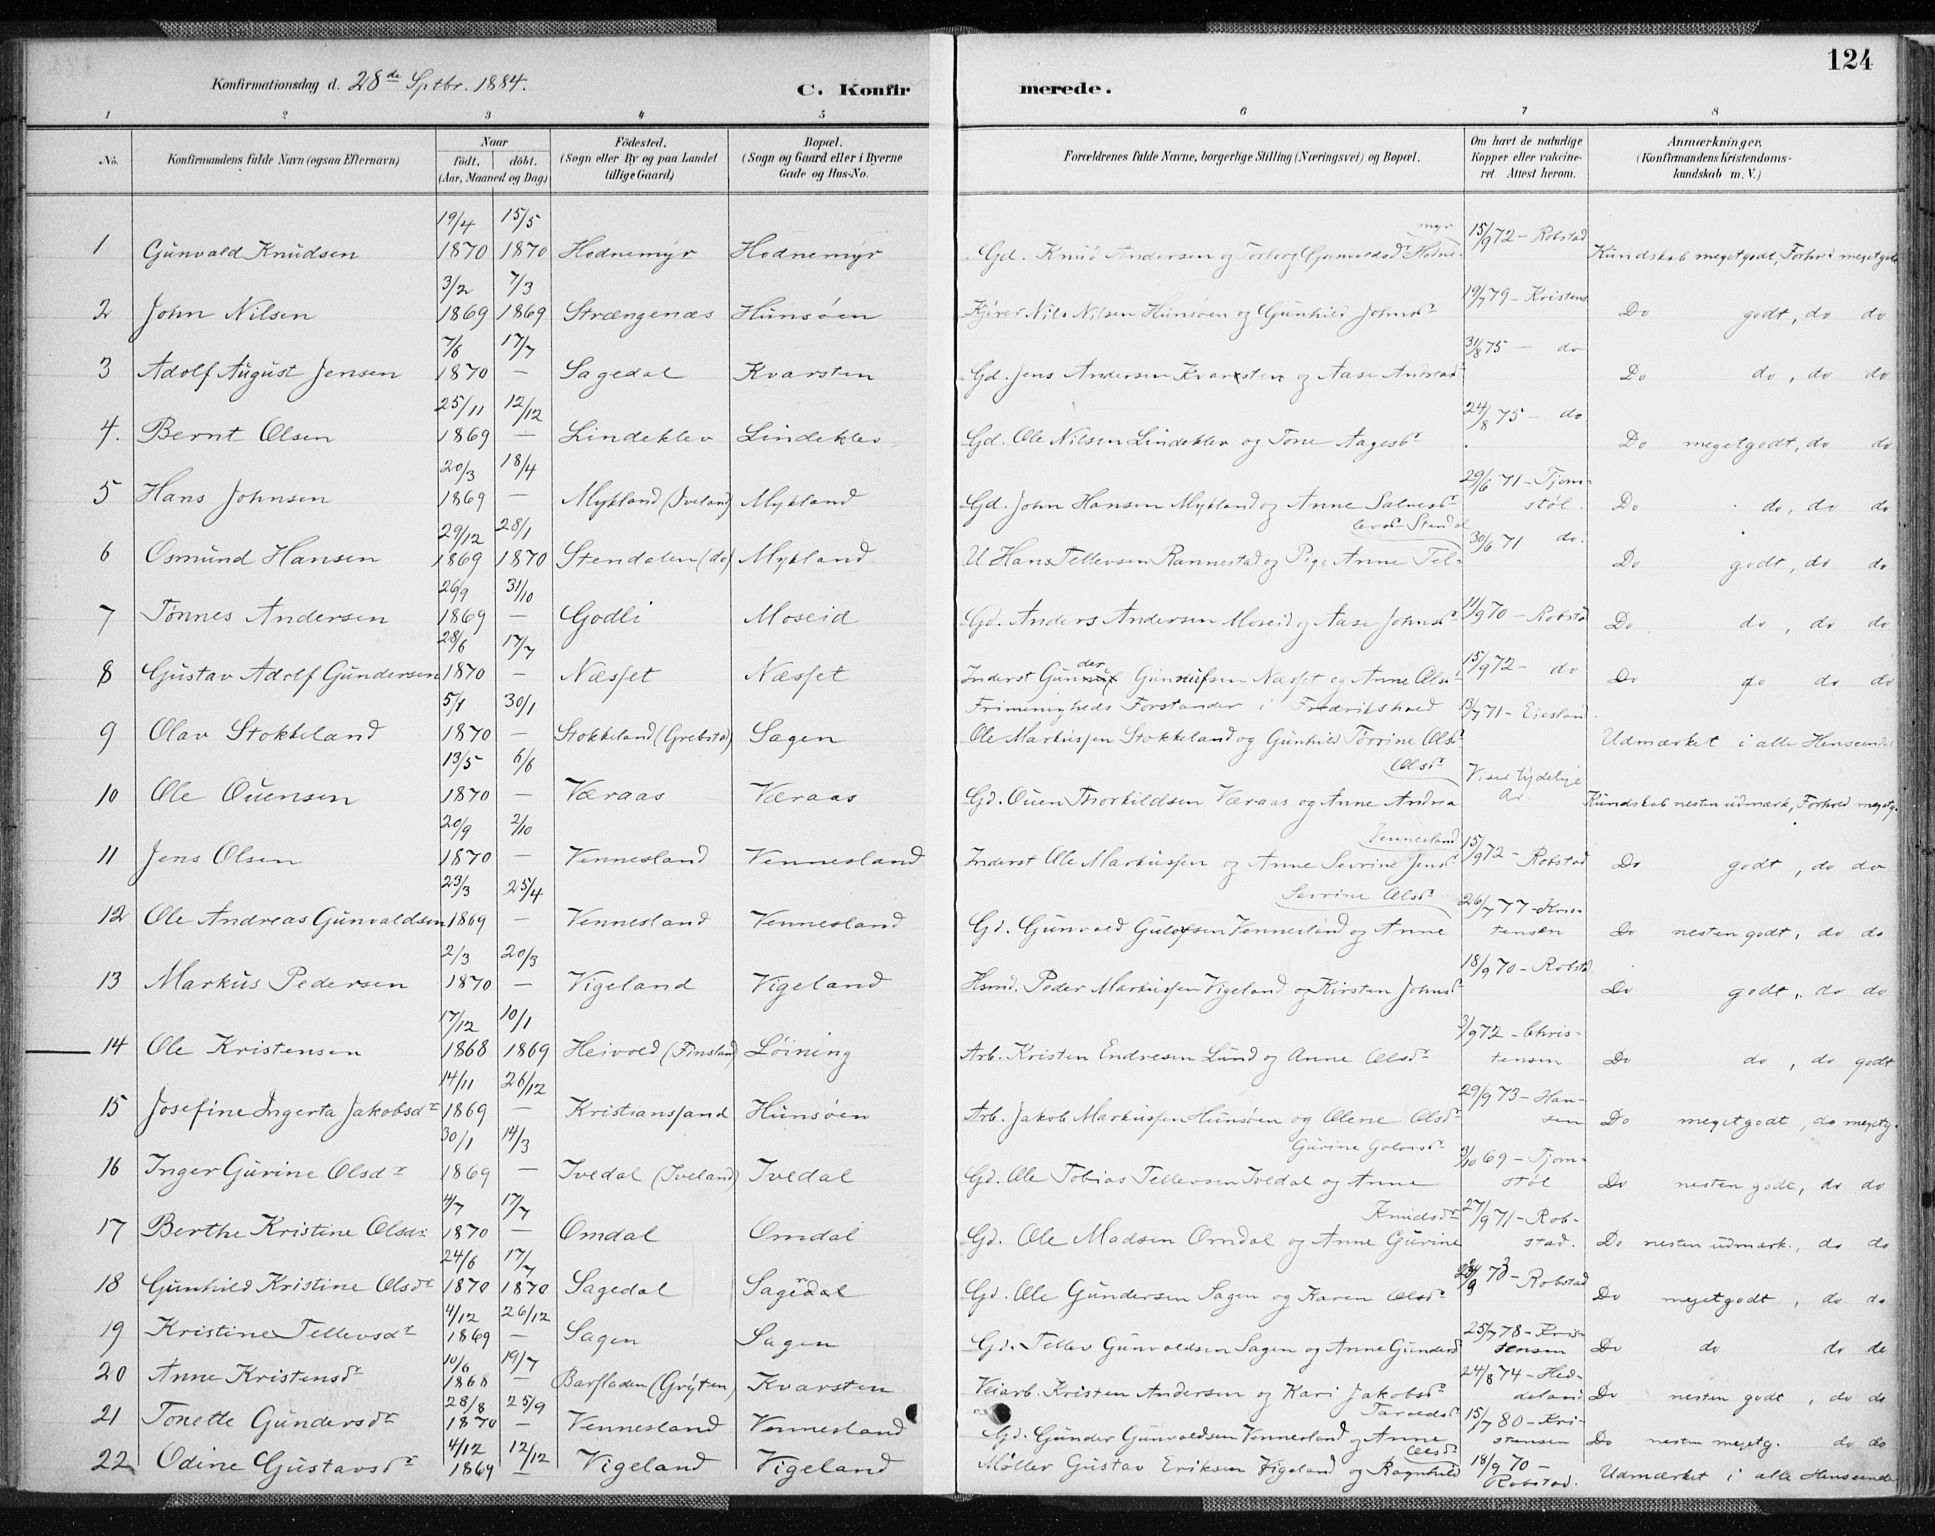 124
Konfirmationsdag d. 28de Sptbr. 1884.
C. Konfirmerede.
1 2 3 4 5 6 7 8
No. Konfirmandens fulde Navn (ogsaa Efternavn) Naar født. døbt. (Aar, Maaned og Dag) Födested. (Sogn eller By og paa Landet tillige Gaard) Bopæl. (Sogn og Gaard eller i Byerne Gade og Hus-No. Forældrenes fulde Navne, borgerlige Stilling (Næringsvei) og Bopæl. Om havt de naturlige Kopper eller vakcineret. Attest herom. Anmærkninger. (Konfirmandens Kristendomskundskab m. V.)
19/4 15/5 myr 15/9 72 - Robstad
1 Gunvald Knudsen 1870 1870 Hodnemyr Hodnemyr Gd. Knud Andersen og Torborg Gunvaldsdr Hodne- Kundskab megetgodt, Forhold megetgodt
3/2 7/3 19/7 79 - Kristens
2 John Nilsen 1869 1869 Strængenæs Hunsøen Kjører Nils Nilsen Hunsøen og Gunhild Johnsdr Do godt, do do
7/6 17/7 31/8 75 - do
3 Adolf August Jensen 1870 - Sagedal Kvarsten Gd. Jens Andersen Kvarsten og Aase Andreasdr Do do, do do
25/11 12/12 24/8 75 - do
4. Bernt Olsen 1869 - Lindeklev Lindeklev Gd. Ole Nilsen Lindeklev og Tone Aagesdr Do megetgodt, do do
20/3 18/4 29/6 71 - Tjom-
5 Hans Johnsen 1869 - Mykland (Iveland) Mykland Gd. John Hansen Mykland og Anne Salvesdr støl. Do do, do do
29/12 28/1 levsdr Stendal 30/6 71 do.
6 Osmund Hansen 1869 1870 Stendalen (do) Mykland U Hans Tellevsen Rannestad og Pige Anne Tel- Do godt, do do
26/9 31/10
7 Tønnes Andersen 1869 - Godli Moseid Gd. Anders Andersen Moseid og Aase Johnsdr 11/9 70 - Robstd Do do, do do
28/6 17/7 der 15/9 72 - do
8 Gustav Adolf Gundersen 1870 - Næsset Næsset Inderst Gun Gunnufsen Næsset og Anne Olsdr Do do do do
5/1 30/1 Frimenigheds Forstander i Fredrikshald 13/7 71 - Eiesland.
9 Olav Stokkeland 1870 - Stokkeland (Grebstad) Sagen Ole Markussen Stokkeland og Gunhild Torrine Olsdr Udmærket i alle Henseender
13/5 6/6 Olsdr Viser tydelige
10 Ole Ouensen 1870 - Væraas Væraas Gd. Ouen Thorkildsen Væraas og Anne Andrea Ar. Kundskab nesten udmærk, Forhold megetg.
20/9 2/10 Vennesland 15/9 72 - Robstad
11 Jens Olsen 1870 - Vennesland Vennesland Inderst Ole Markussen og Anne Sevrine Jensdr Do godt, do do
23/3 25/4 Sevrine Olsdr 26/7 77 - Kris-
12 Ole Andreas Gunvaldsen 1869 - Vennesland Vennesland Gd. Gunvald Gulofsen Vennesland og Anne tensen Do nesten godt, do do
2/3 20/3 18/9 70 - Robstd
13 Markus Pedersen 1870 - Vigeland Vigeland Hsmd. Peder Markussen Vigeland og Kirsten Johnsdr Do godt, do do
17/12 10/1 3/9 72 - Chris-
14 Ole Kristensen 1868 1869 Heivold (Finsland) Løining Arb. Kristen Endresen Lund og Anne Olsdr tensen Do do, do godt
14/11 26/12 29/9 73 - Han-
15 Josefine Ingerta Jakobsdr 1869 - Kristianssand Hunsøen Arb. Jakob Markussen Hunsøen og Olene Olsdr sen Do megetgodt, do megetg.
30/1 14/3 Gurine 3/10 69 - Tjom-
16 Inger Gurine Olsdr 1869 - Ivedal (Iveland) Ivedal Gd. Ole Tobias Tellevsen Ivedal og Anne støl Do nesten godt, do do
4/7 17/7 Knudsdr 27/9 71 - Rob-
17 Berthe Kristine Olsdr 1870 - Omdal Omdal Gd. Ole Madsen Omdal og Anne Gurine stad. Do nesten udmærk., do do
24/6 17/7 73 - Robstad
18 Gunhild Kristine Olsdr 1870 1870 Sagedal Sagen Gd. Ole Gundersen Sagen og Karen Olsdr Do megetgodt, do do
4/12 26/12 25/7 78 - Kris-
19 Kristine Tellevsdr 1869 - Sagen Sagen Gd. Tellev Gunvaldsen Sagen og Anne Gundersdr tensen Do do do do
10/6 19/7 24/8 74 - Hed-
20 Anne Kristensdr 1868 - Barfladen (Grýten) Kvarsten Veiarb. Kristen Andersen og Kari Jakobsdr deland Do nesten godt, do do
28/8 25/9 Taraldsdr 15/7 80 - Kri-
21 Tonette Gundersdr 1870 - Vennesland Vennesland Gd. Gunder Gunvaldsen Vennesland og Anne stensen Do nesten megetg. do do
4/12 12/12 Olsdr 18/9 70 -
22 Odine Gustavsdr 1869 - Vigeland Vigeland Møller Gustav Eriksen Vigeland og Ragnhild Robstad. Udmærket i alle Henseender